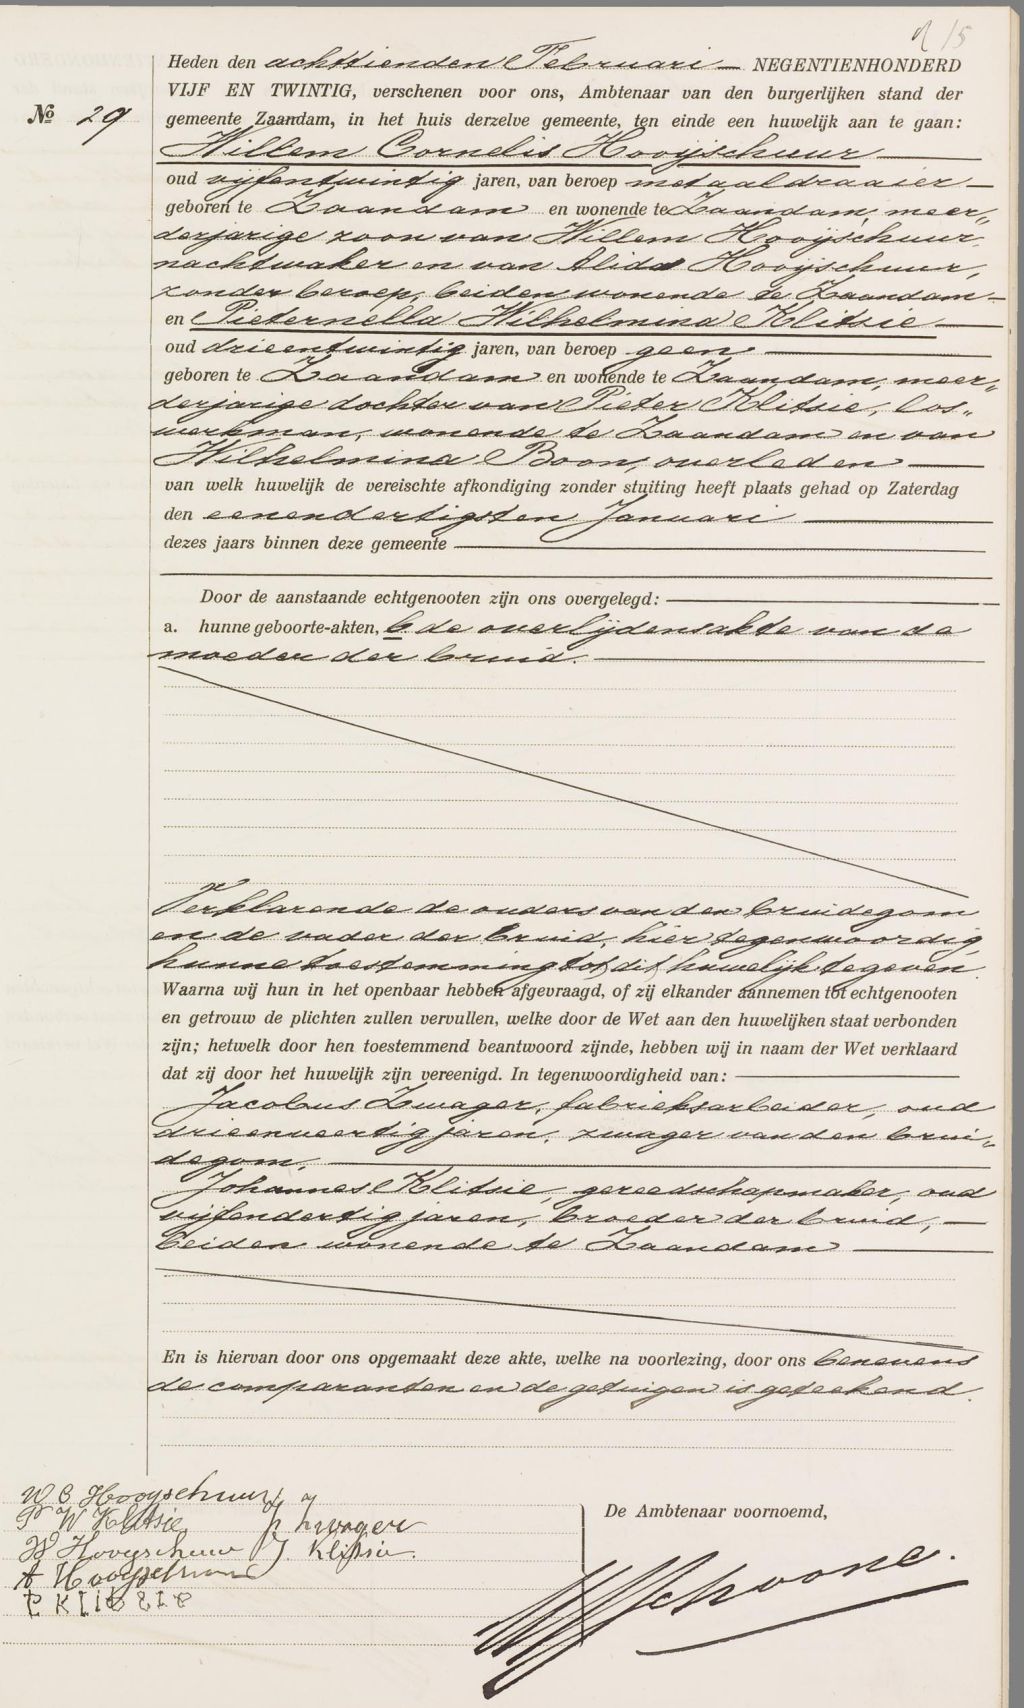 15
Heden den achttienden Februari — NEGENTIENHONDERD
VIJF EN TWINTIG, verschenen voor ons, Ambtenaar van den burgerlijken stand der
№ 29
gemeente Zaandam, in het huis derzelve gemeente, ten einde een huwelijk aan te gaan:
Willem Cornelis Hooijschuur
oud vijfentwintig jaren, van beroep metaaldraaier
geboren te Zaandam en wonende te Zaandam, meer„
derjarige zoon van Willem Hooijschuur,
nachtwaker en van Alida Hooijschuur,
zonder beroep, beiden wonende te Zaandam
en Pieternella Wilhelmina Klitsie
oud drieentwintig jaren, van beroep geen
geboren te Zaandam en wonende te Zaandam, meer„
derjarige dochter van Pieter Klitsie, los„
werkman, wonende te Zaandam en van
Wilhelmina Boon, overleden
van welk huwelijk de vereischte afkondiging zonder stuiting heeft plaats gehad op Zaterdag
den eenendertigsten Januari
dezes jaars binnen deze gemeente
Door de aanstaande echtgenooten zijn ons overgelegd:
a. hunne geboorte-akten, b de overlijdensakte van de
moeder der bruid.
Verklarende de ouders van den bruidegom
en de vader der bruid, hier tegenwoordig,
hunne toestemming tot dit huwelijk te geven.
Waarna wij hun in het openbaar hebben afgevraagd, of zij elkander aannemen tot echtgenooten
en getrouw de plichten zullen vervullen, welke door de Wet aan den huwelijken staat verbonden
zijn; hetwelk door hen toestemmend beantwoord zijnde, hebben wij in naam der Wet verklaard
dat zij door het huwelijk zijn vereenigd. In tegenwoordigheid van:
Jacobus Zwager, fabrieksarbeider, oud
drieenveertig jaren, zwager van den brui„
degom,
Johannes Klitsie, gereedschapmaker, oud
vijfendertig jaren, broeder der bruid,
beiden wonende te Zaandam
En is hiervan door ons opgemaakt deze akte, welke na voorlezing, door ons benevens
de comparanten en de getuigen is geteekend.
W C Hooyschuur
P W Klitsie J Zwager
W Hooyschuur J. Klitsie.
A Hooyschuur
P Klitsie
De Ambtenaar voornoemd,
Schoone.